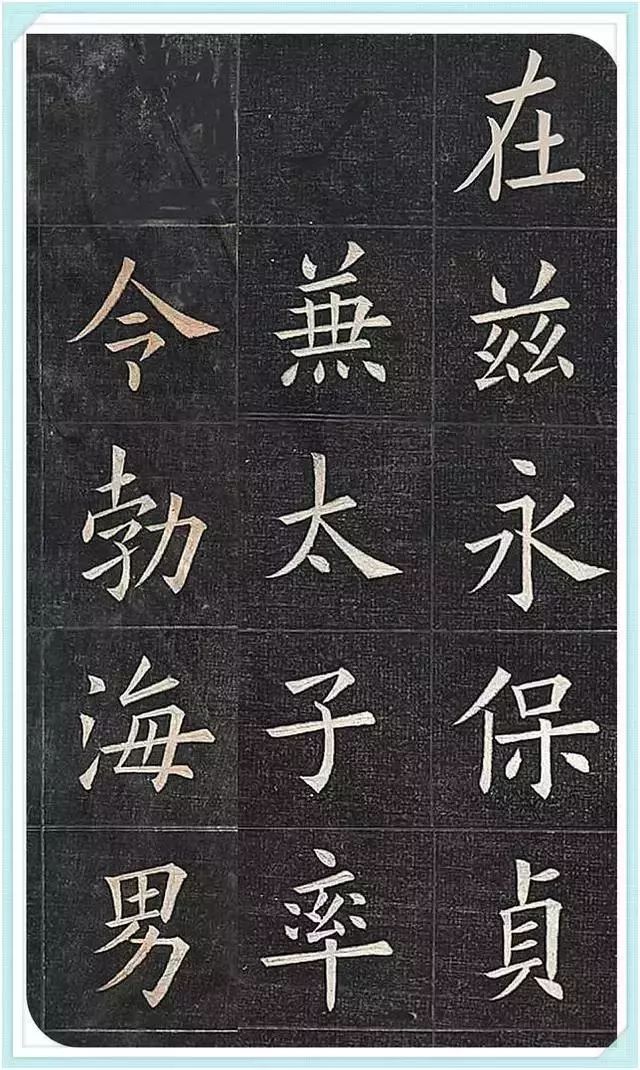 在兹永保貞
兼太子率
令勃海男